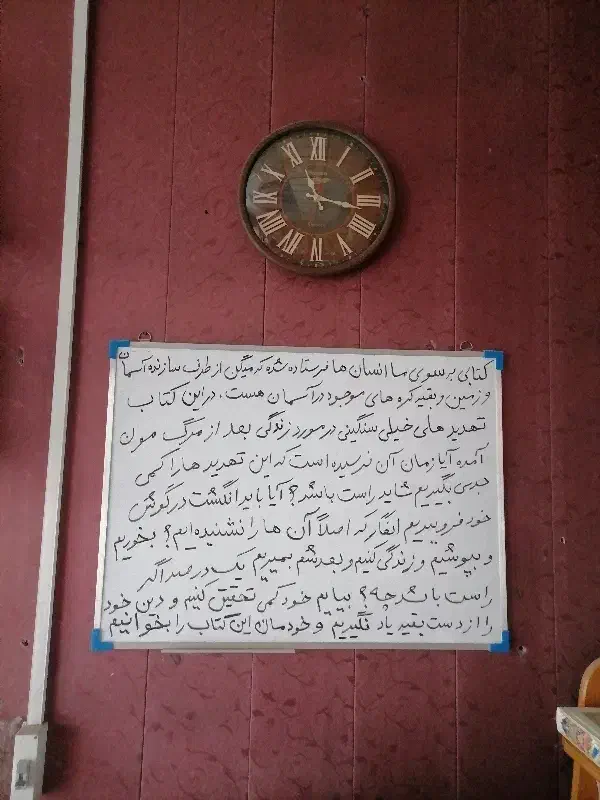 XII
I
II
III
IIII
V
VI
VII
VIII
IX
X
XI
کتابی بر سوی ما انسان ها فرستاده شده که میگن از طرف سازنده آسمان
و زمین و بقیه کره های موجود در آسمان هست. در این کتاب
تهدید های خیلی سنگینی در مورد زندگی بعد از مرگ مون
آمده آیا زمان آن نرسیده است که این تهدید ها را کمی
جدی بگیریم شاید راست باشد؟ آیا باید انگشت در گوش
خود فرو ببریم انگار که اصلاً آن ها را نشنیده ایم؟ بخوریم
و بپوشیم و زندگی کنیم و بعدشم بمیریم یک درصد اگر
راست باشد چه؟ بیایم خود کمی تحقیق کنیم و دین خود
را از دست بقیه یاد نگیریم و خودمان این کتاب را بخوانیم